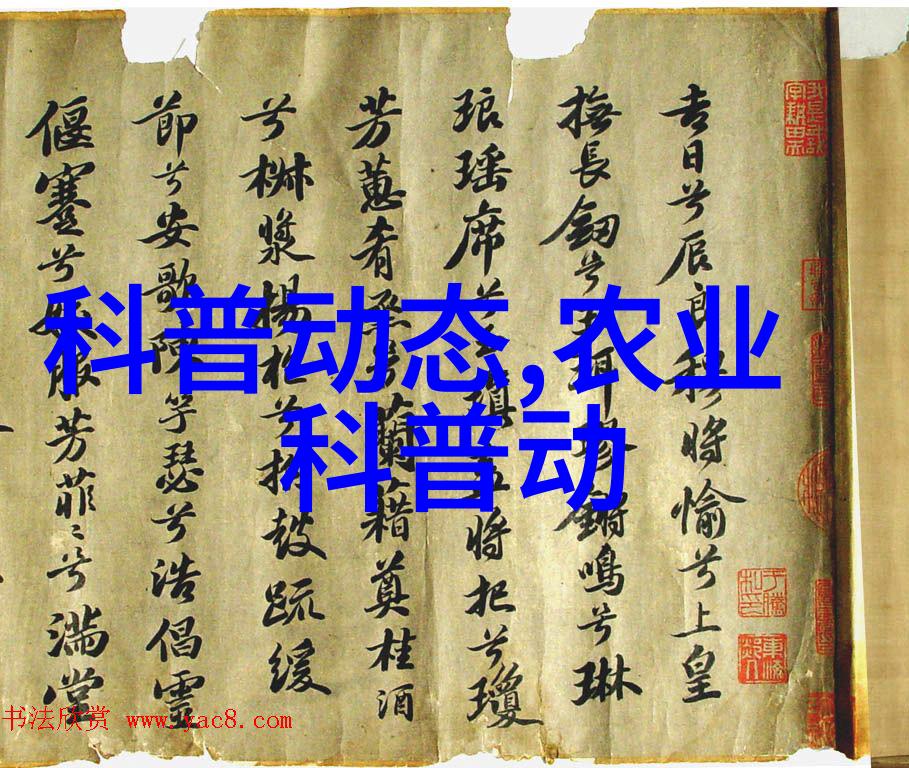 吉日兮辰良穆將愉兮上皇
撫長劔兮玉珥璆鏘鳴兮琳
琅瑶席兮玉瑱盍將把兮瓊
芳蕙肴蒸兮蘭藉奠桂酒
兮椒漿揚枹兮拊鼓疏緩
節兮安歌陳竽瑟兮浩倡靈
偃蹇兮姣服芳菲〻兮滿堂
科普动态,农业
科普动
书法欣赏 www.yac8.com